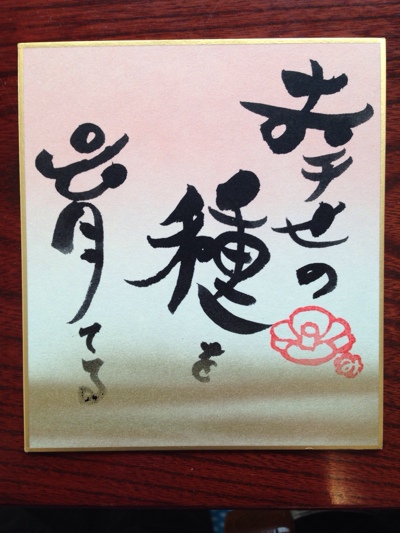 幸せの
種を
育てる
み